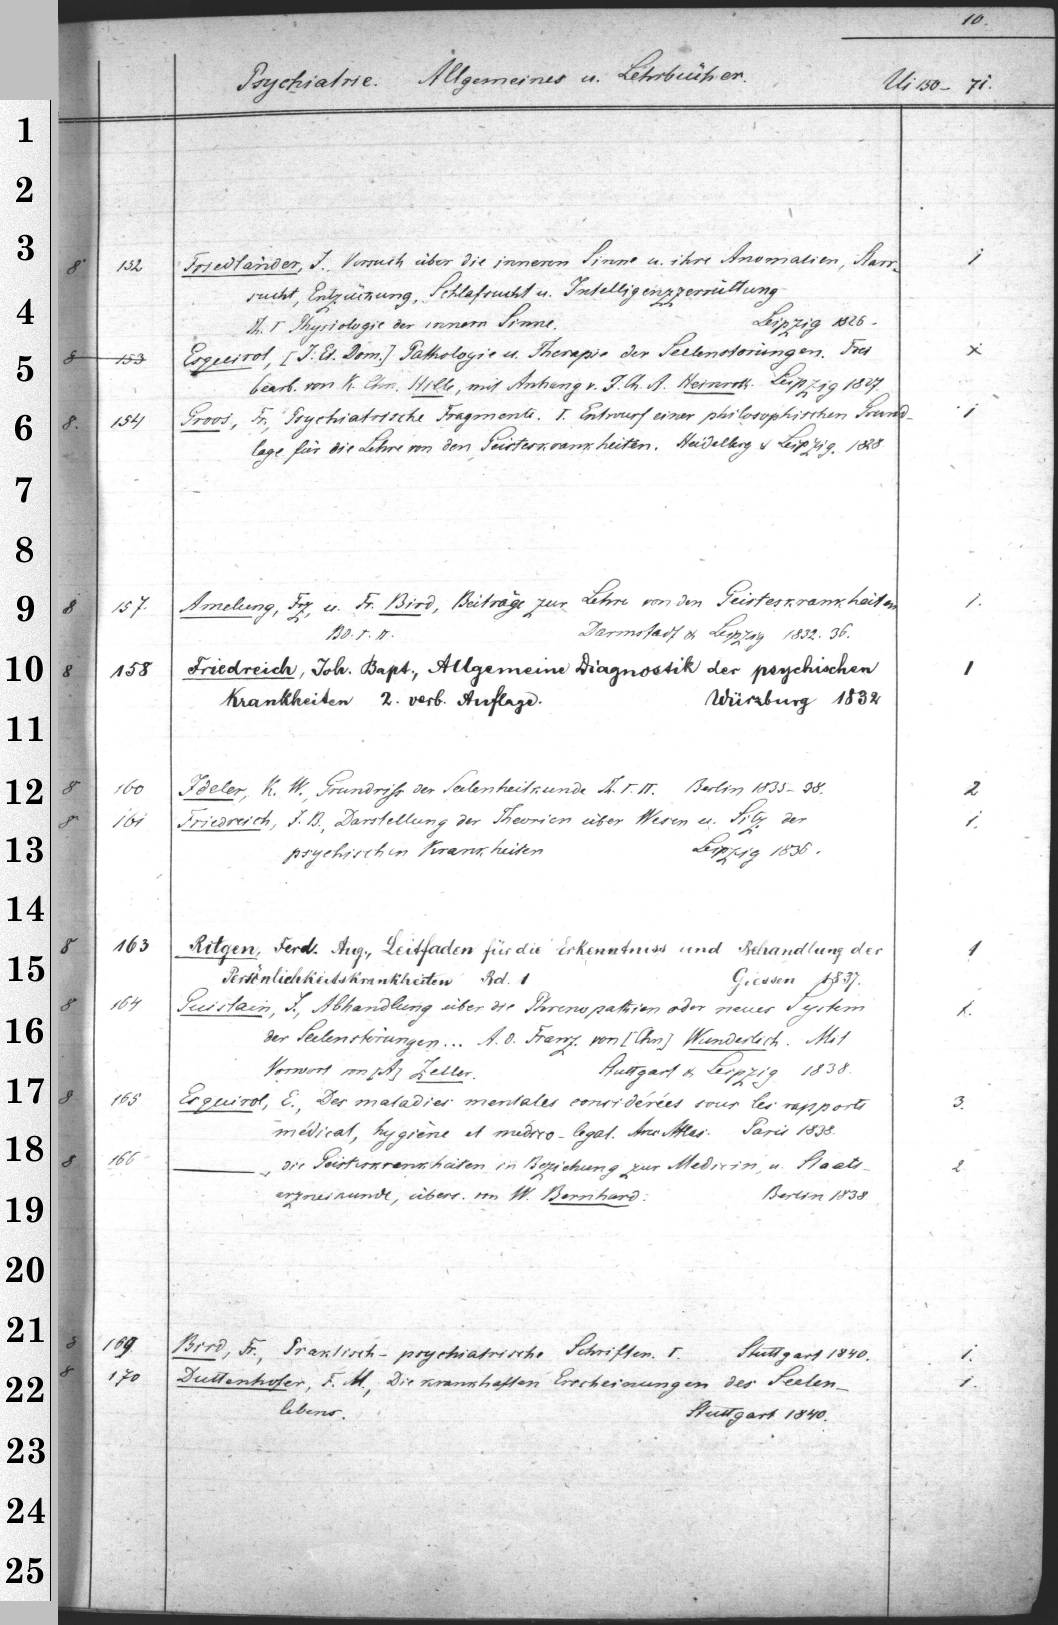 10.
Psychiatrie. Allgemeines u. Lehrbücher. Ui 150- 71.
1
2
3
8 152 Friedländer, J. Versuch über die inneren Sinne u. ihre Anomalien, Starr- 1
sucht, Entzückung, Schlafsucht u. Intelligenzzerrüttung
4
Th. I Physiologie der innern Sinne. Leipzig 1826.
5
8 153 Esquirol, [J. Et. Dom.] Pathologie u. Therapie der Seelenstörungen. Frei x
bearb. von K. Chr. Hille, mit Anhang v. J. Ch. A. Heinroth. Leipzig 1827.
6
8. 154 Groos, Fr., Psychiatrische Fragmente. I. Entwurf einer philosophischen Grund- 1
lage für die Lehre von den Geisteskrankheiten. Heidelberg & Leipzig. 1828
7
8
9
8 157. Amelung, Frz, u. Fr. Bird, Beiträge zur Lehre von den Geisteskrankheiten 1.
Bd. I. II. Darmstadt & Leipzig 1832. 36.
10
8 158 Friedreich, Joh. Bapt., Allgemeine Diagnostik der psychischen 1
Krankheiten 2. verb. Auflage. Würzburg 1832
11
12
8 160 Ideler, K. W., Grundriss der Seelenheilkunde Th. I. II. Berlin 1835-38. 2
8 161 Friedreich, J. B., Darstellung der Theorien über Wesen u. Sitz der 1.
13
psychischen Krankheiten Leipzig 1836.
14
8 163 Ritgen, Ferd. Aug., Leitfaden für die Erkenntniss und Behandlung der 1
15
Persönlichkeitskrankheiten Bd. 1 Giessen 1837.
8 164 Guislain, J., Abhandlung über die Phrenopathien oder neues System 1.
16
der Seelenstörungen... A. d. Franz. von [Chn] Wunderlich. Mit
Vorwort von [A] Zeller. Stuttgart & Leipzig 1838.
17
8 165 Esquirol, E., Des maladies mentales considérées sous les rapports 3.
médical, hygiène et médico-légal. Avec Atlas. Paris 1838.
18
8 166 ———, die Geisteskrankheiten in Beziehung zur Medizin, u. Staats- 2
arzneikunde, übers. von W. Bernhard. Berlin 1838
19
20
21
8 169. Bird, Fr., Praktisch-psychiatrische Schriften. I. Stuttgart 1840. 1.
8 170 Duttenhofer, F. M., Die krankhaften Erscheinungen des Seelen- 1.
22
lebens. Stuttgart 1840.
23
24
25